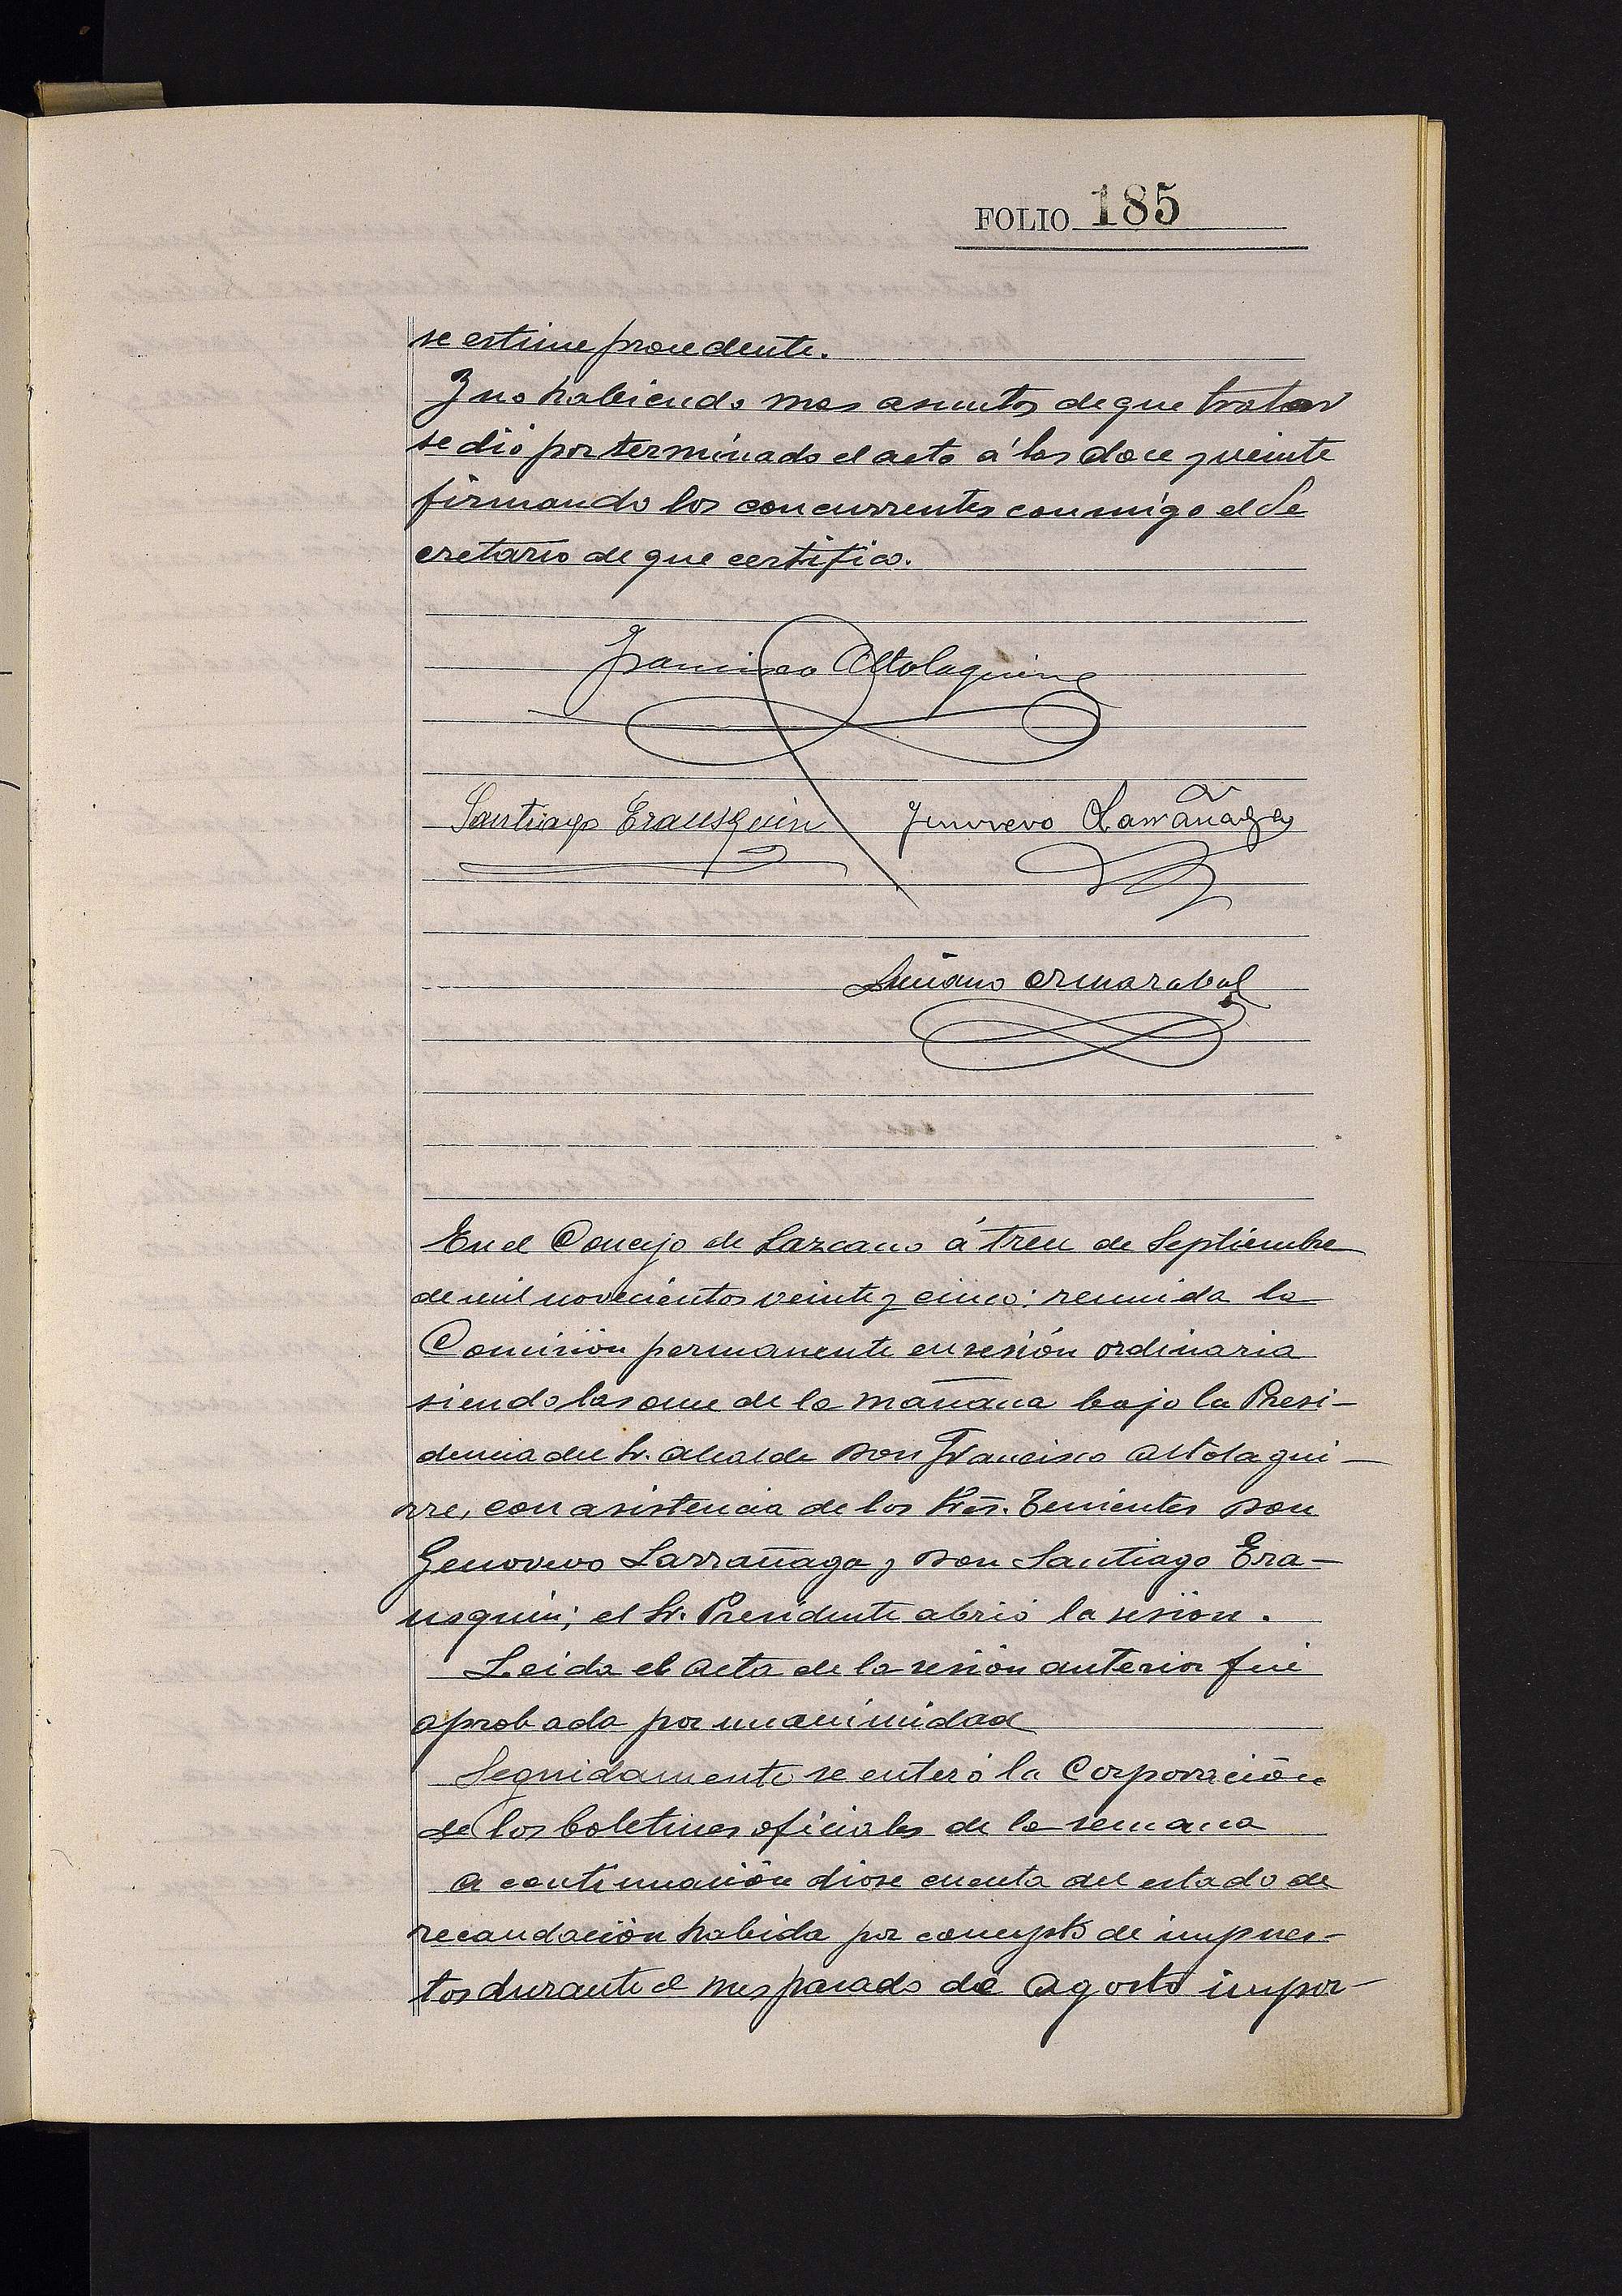 FOLIO 185
se estime procedente.
Y no habiendo mas asuntos de que tratar
se dió por terminado el acto á las doce y veinte
firmando los concurrentes conmigo el Se
cretario de que certifico.
Francisco Altolaguirre
Santiago Erausquin Genovevo Larrañaga
Luciano Armarabal
En el Concejo de Lazcano á trece de Septiembre
de mil novecientos veinte y cinco: reunida la
Comisión permanente en sesión ordinaria
siendo las once de la mañana bajo la Presi-
dencia del Sr. Alcalde Don Francisco Altolagui-
rre, con asistencia de los Sres. Tenientes Don
Genovevo Larrañaga y Don Santiago Era-
usquin; el Sr. Presidente abrió la sesión.
Leida el acta de la sesión anterior fué
aprobada por unanimidad
Seguidamente se enteró la Corporación
de los boletines oficiales de la semana
A continuación diose cuenta del estado de
recaudación habida por concepto de impues-
tos durante el mes pasado de Agosto impor-